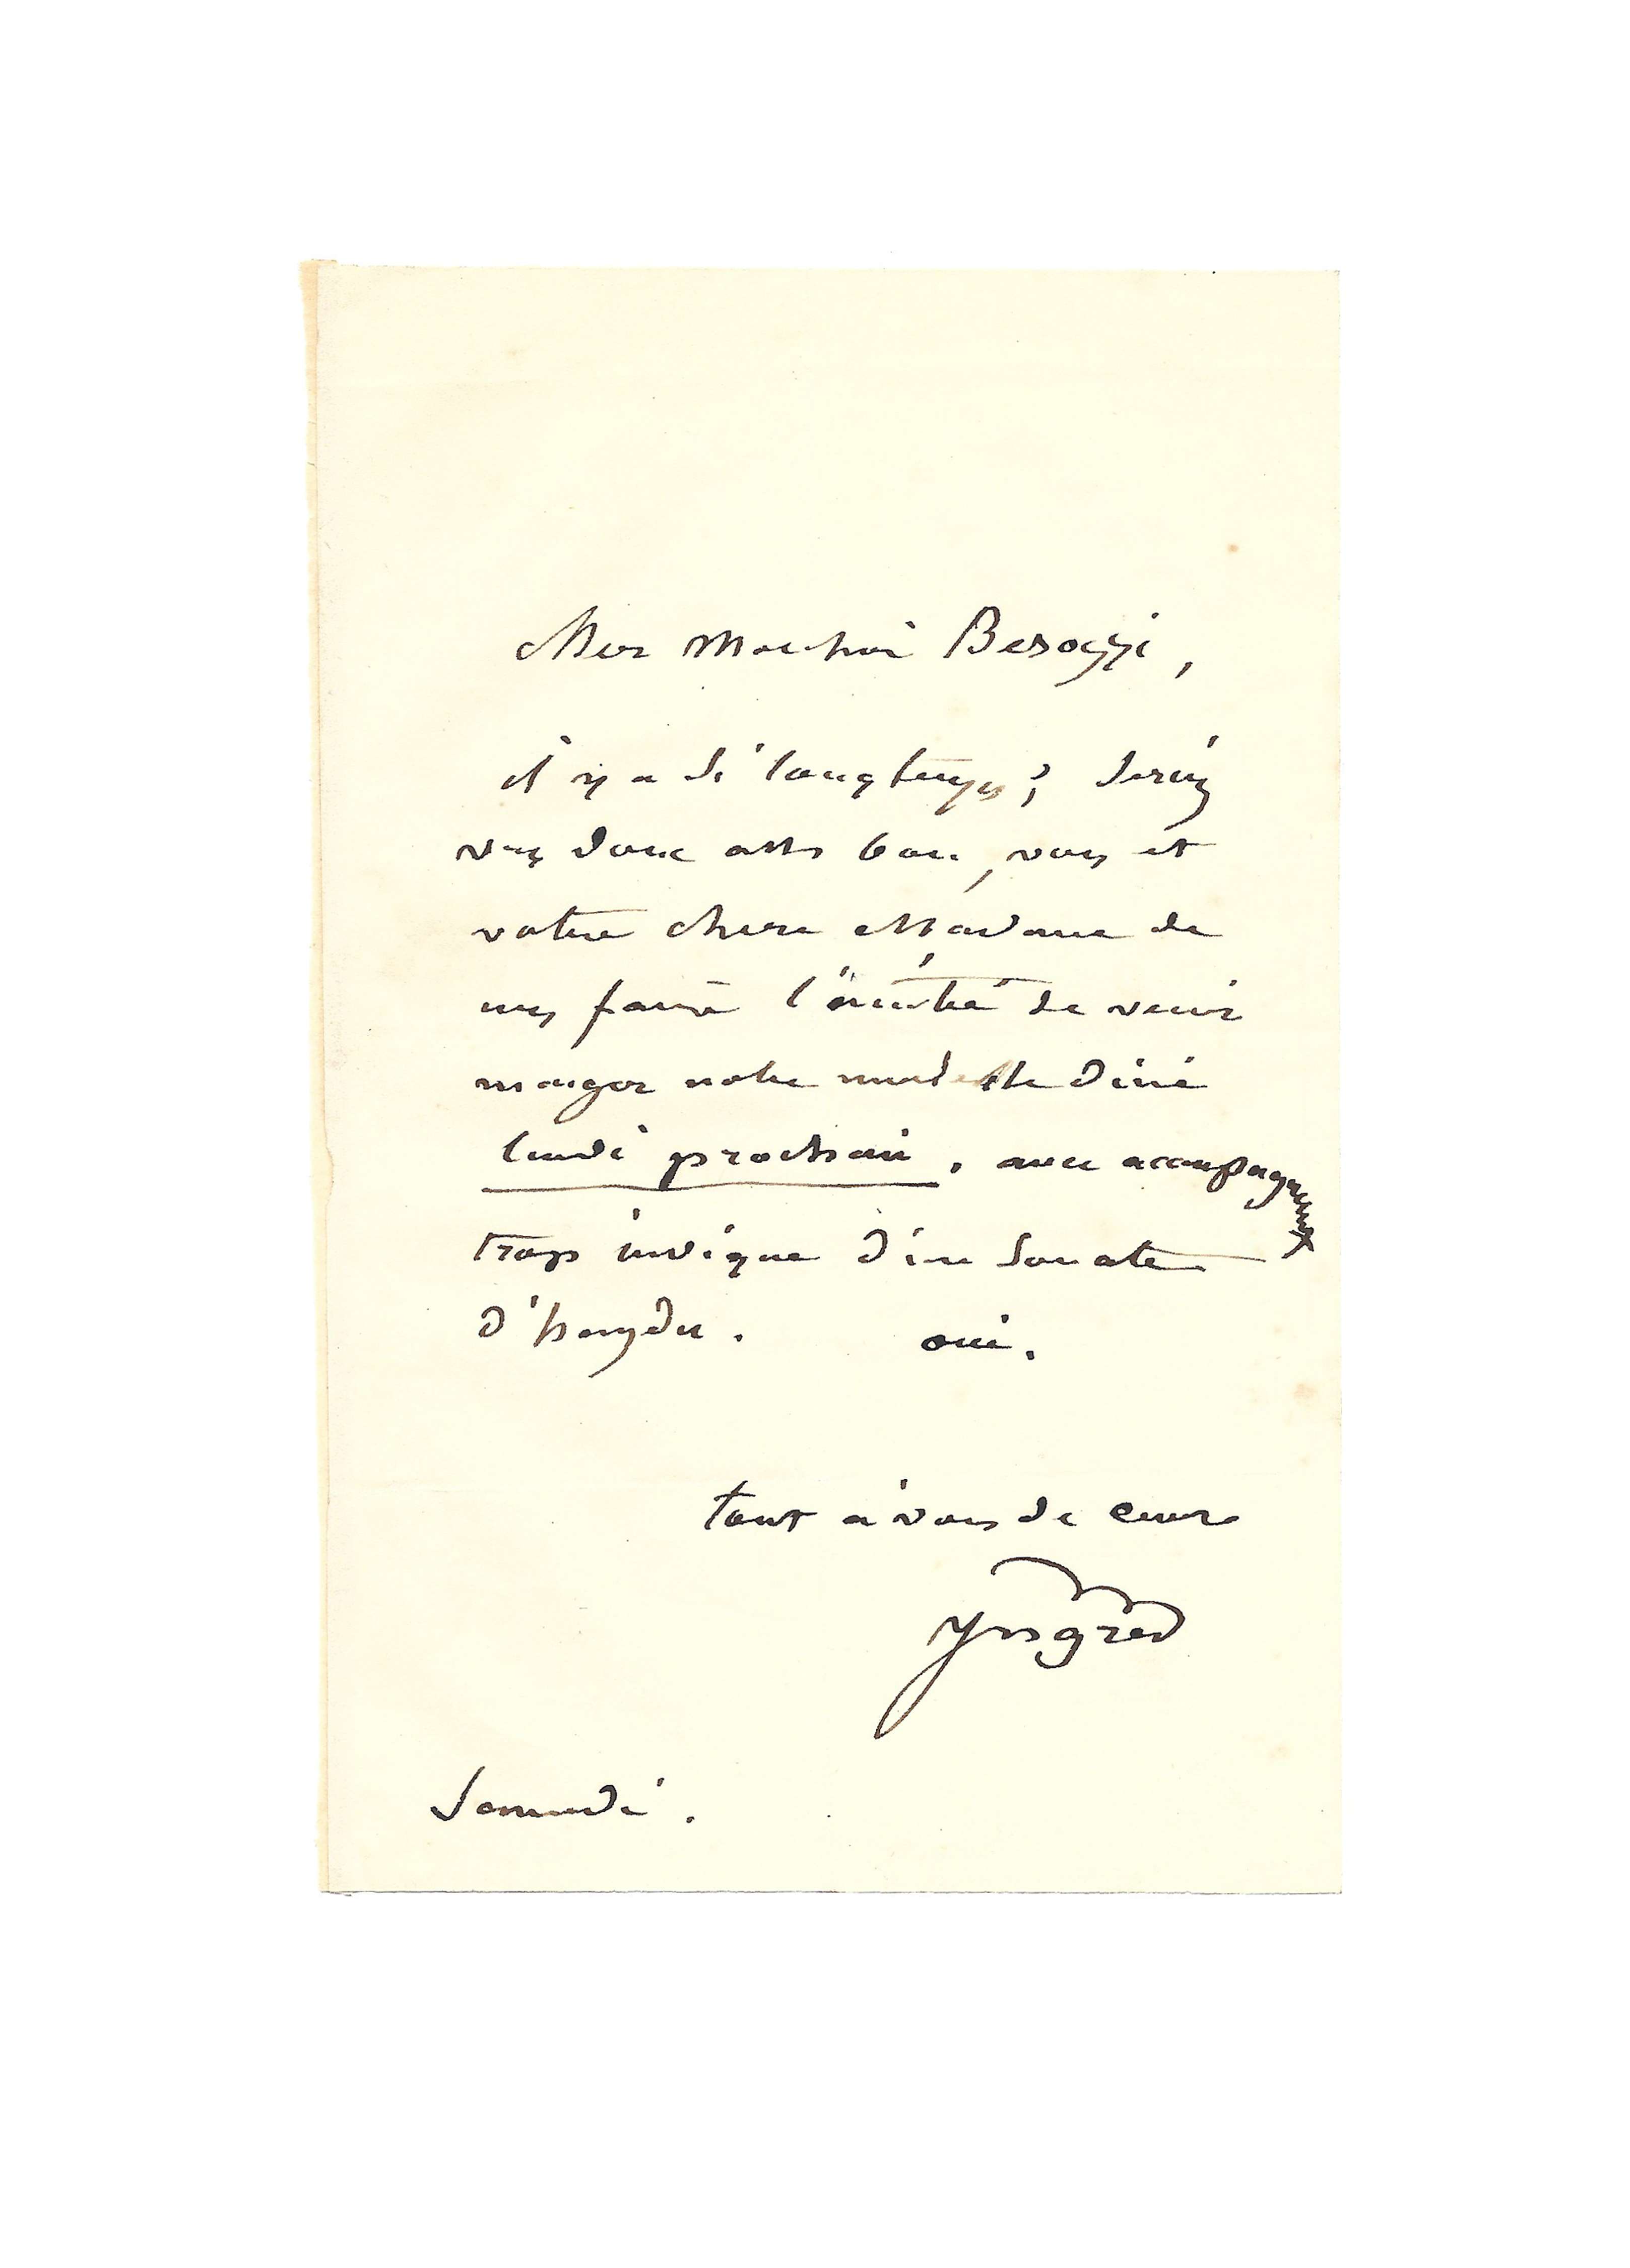 cher Monsieur Besozzi,
il y a si longtemps; seriez
vous donc assez bon, vous et
votre chere Madame de
nous faire l'amitié de venir
manger notre modeste diné
lundi prochain, avec accompagnement
trop indigne d'une Sonate
d'haydn. oui.
tout à vous de cœur
Ingres
Samedi.